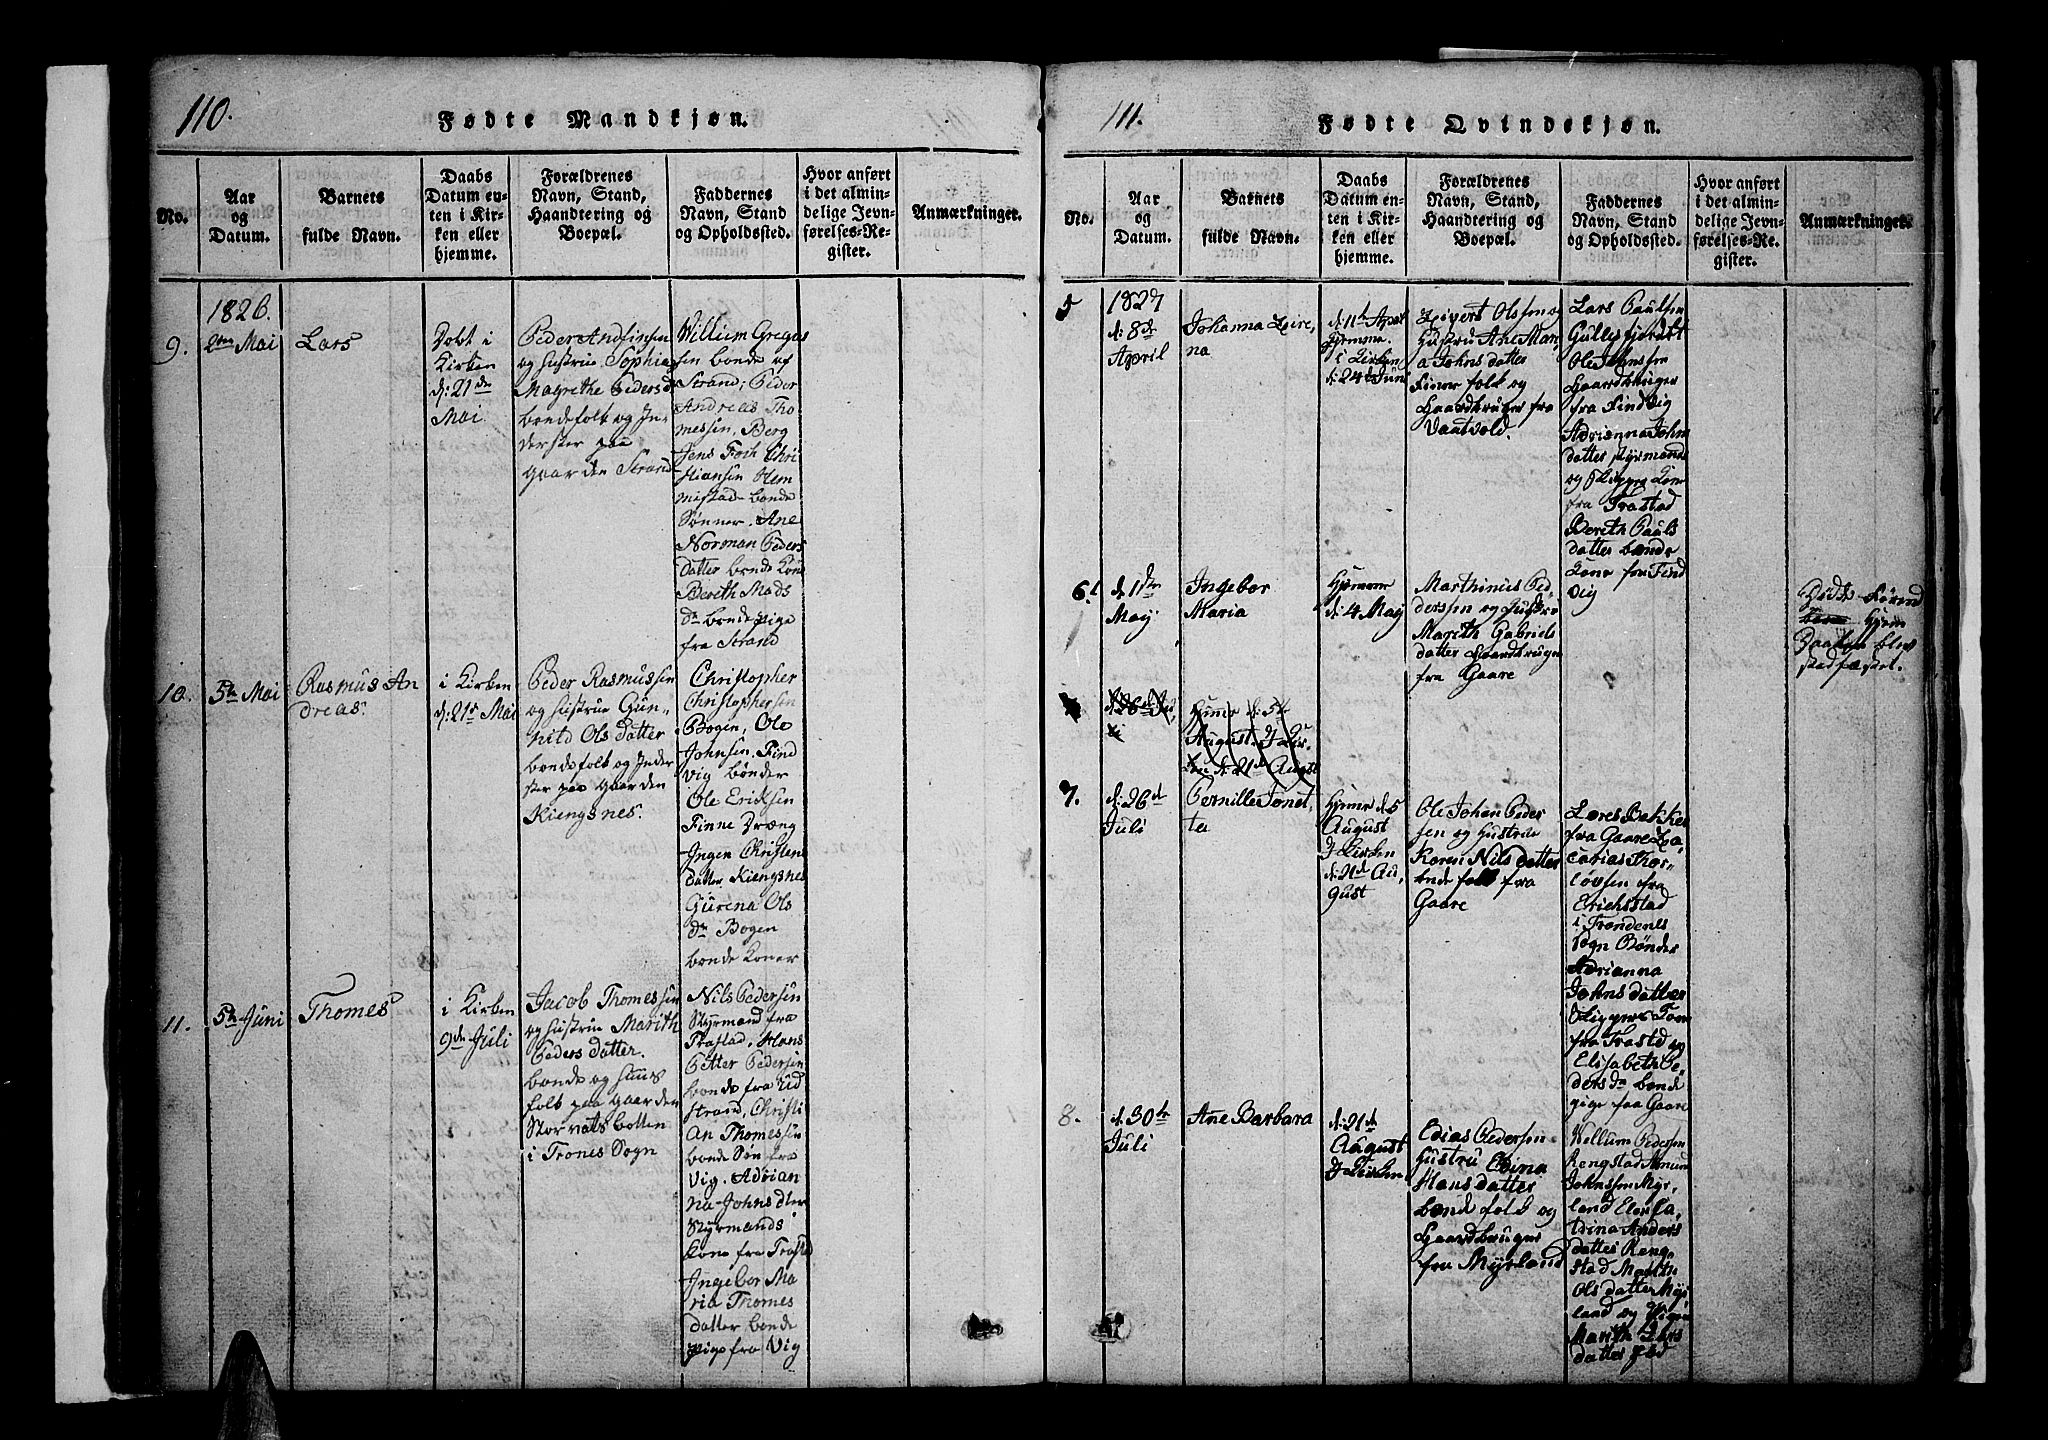 110.
Fødte Mandkjøn.
No.
Aar
og
Datum.
Barnets
fulde Navn.
Daabs
Datum en-
ten i Kir-
ken eller
hjemme.
Forældrenes
Navn, Stand,
Haandtering og
Boepæl.
Faddernes
Navn, Stand
og Opholdssted.
Hvor anført
i det almin-
delige Jevn-
førelses-Re-
gister.
Anmærkninger.
1826.
9.
2den Mai
Lars
Døbt i
Kirken
d: 21de
Mai
Peder Andfinsen
og Hustrue Sophia
Magrethe Pedersd
bondefolk og In-
derster paa
gaarden Strand
Willium Gregus
sen bonde af
Strand; Peder
Andreas Tho
messen, Berg
Jens Foch Chri
stiansen Hem
mistad bonde
Sønner. Ane
Norman Peders
datter bonde Kone
Berith Mads
dr bonde pige
fra Strand
10.
5te Mai
Rasmus An
dreas.
i Kirken
d: 21de Mai
Peder Rasmussen
og Hustrue Gun-
nild Ols datter
bondefolk og Inder
ster paa gaarden
Kiengsnes.
Christopher
Christophersen
Bogen, Ole
Johnsen, Find
vig bønder
Ole Eriksen
Finne Dræng
Ingen Christens
datter Kiengsnes
Gurena Ols
dr Bogen
bonde Koner
11.
5te Juni
Thomes
i Kirken
9de Juli
Jacob Thomessen
og Hustrue Marith
Peders datter.
bonde og Huus
folk paa gaarden
Stor vats botten
i Trones Sogn
Nils Pedersen
Styrmand fra
Trastad, Hans
Petter Pedersen
bonde fra Ud
strand, Christi
an Thomessen
bonde Søn fra
Vig. Adrian
na Johns dtter
Styrmands
Kone fra Trastad
Ingebor Ma
ria Thomes
datter bonde
Pige fra Vig
111.
Fødte Qvindekjøn.
No.
Aar
og
Datum.
Barnets
fulde Navn.
Daabs
Datum en-
ten i Kir-
ken eller
hjemme.
Forældrenes
Navn, Stand,
Haandtering og
Boepæl.
Faddernes
Navn, Stand
og Opholdssted.
Hvor anført
i det almin-
delige Jevn-
førelses-Re-
gister.
Anmærkninger.
5
1827
d: 8de
April
Johanna Leire,
na
d: 11te Apr
hjemme.
i Kirken
d: 24de Juni
Sivert Olssen og
Hustru Ane Mar,
a Johns datter
Finne folk og
Gaardbruger fra
Vaatvold.
Lars Paulsen
Gullesfjordbt
Ole Johnsen
Gaardbruger
fra Findvig
Adrianna John
datter Styrmands
og Skippers Kone
fra Trastad
Berith Pauls
datter bonde
Kone fra Find
vig
6.
d. 11te
May
Ingebor
Maria
Hjemme
d: 4 May
Marthinus Pe-
derssen og Hustru
Marith Gabriels
datter Gaardbruger
fra Gaare
Døde Førend
Hjem
Daaben blev
stadfæstet.
d: 26de Ju,
li
Hjeme d: 5te
August. I Kir-
ken d: 21de August
7.
d: 26de
Juli
Pernille Jonet,
ta
Hjeme d: 5
August
I Kirken
d: 21de Au,
gust
Ole Johan Peder
sen og Hustrue
Karen Nils datter
bonde folk fra
Gaare
Lars Bakke
fra Gaare Za,
carias Thor
løvsen fra
Erichsstad
i Trondenes
Sogn Bønder
Adrianna
Johns datter
Skippers Kone
fra Trastd og
Elisabeth Pe-
ders dr bonde
pige fra Gaare
8.
d: 30te
Juli
Ane Barbara
d: 21de
August
I Kirken
Elias Pedersen
Hustru Elina
Hans datter
bonde folk og
Gaardbruger
fra Myrland
Wellum Pedersen
Rengstad Amund
Johnssen Myr,
land Elen Ca,
trina Anders
datter Reng,
stad Marith
Ols datter Myr,
land og Pigen
Marith Lars
datter